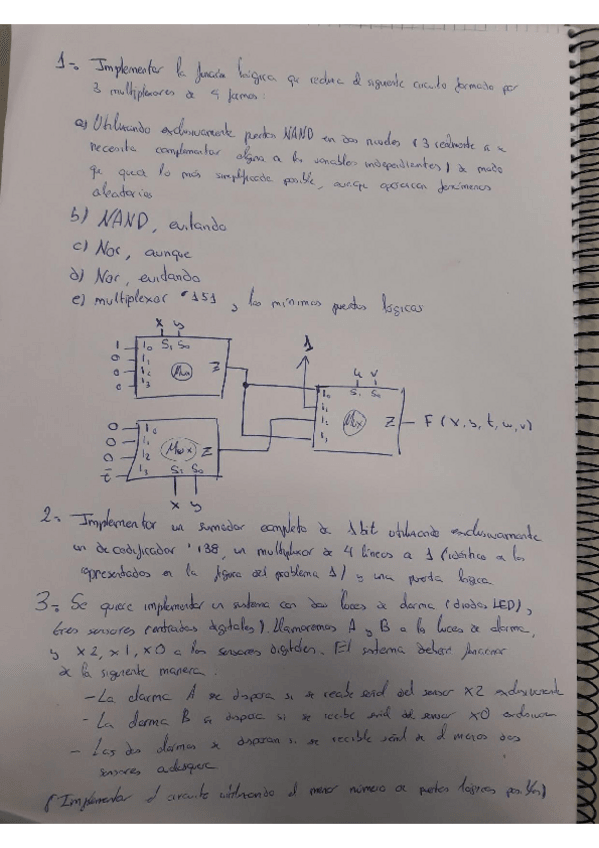 1-. Implementar la función lógica que realiza el siguiente circuito formado por
3 multiplexores de 4 formas:
a) Utilizando exclusivamente puertas NAND en dos niveles (3 realmente si se
necesita complementar alguna a las variables independientes) de modo
que quede lo más simplificado posible, aunque aparezcan fenómenos
aleatorios
b) NAND, evitando
c) Nor, aunque
d) Nor, evitando
e) multiplexor '151, y las mínimas puertas lógicas
X Y
1 I0 S1 S0
0 I1
0 I2 Mux Z
0 I3
1
u v
I0 S1 S0
I1
I2 Mux Z F(x,y,t,u,v)
I3
0 I0
0 I1
0 I2 Mux Z
t̅ I3 S1 S0
X Y
2-. Implementar un sumador completo de 1 bit utilizando exclusivamente
un decodificador '138, un multiplexor de 4 líneas a 1 (idéntico a los
representados en la figura del problema 1) y una puerta lógica
3-. Se quiere implementar un sistema con dos luces de alarma (diodos LED),
tres sensores (entradas digitales). Llamaremos A y B a las luces de alarma,
y X2, X1, X0 a los sensores digitales. El sistema deberá funcionar
de la siguiente manera:
- La alarma A se dispara si se recibe señal del sensor X2 exclusivamente
- La alarma B se dispara si se recibe señal del sensor X0 exclusivam
- Las dos alarmas se disparan si se recible señal de al menos dos
sensores
(Implementar el circuito utilizando el menor número de puertas lógicas